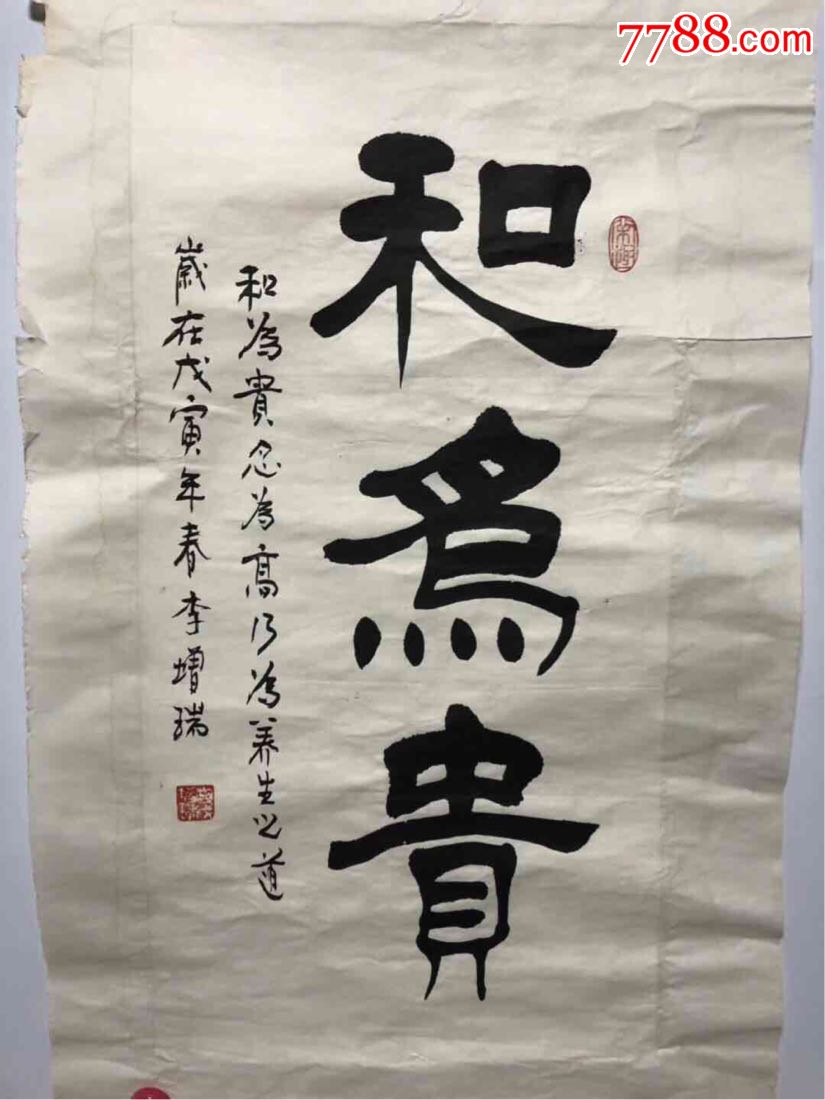 7788.com
和為貴
和為貴忍為高乃為养生之道
歲在戊寅年春李增瑞